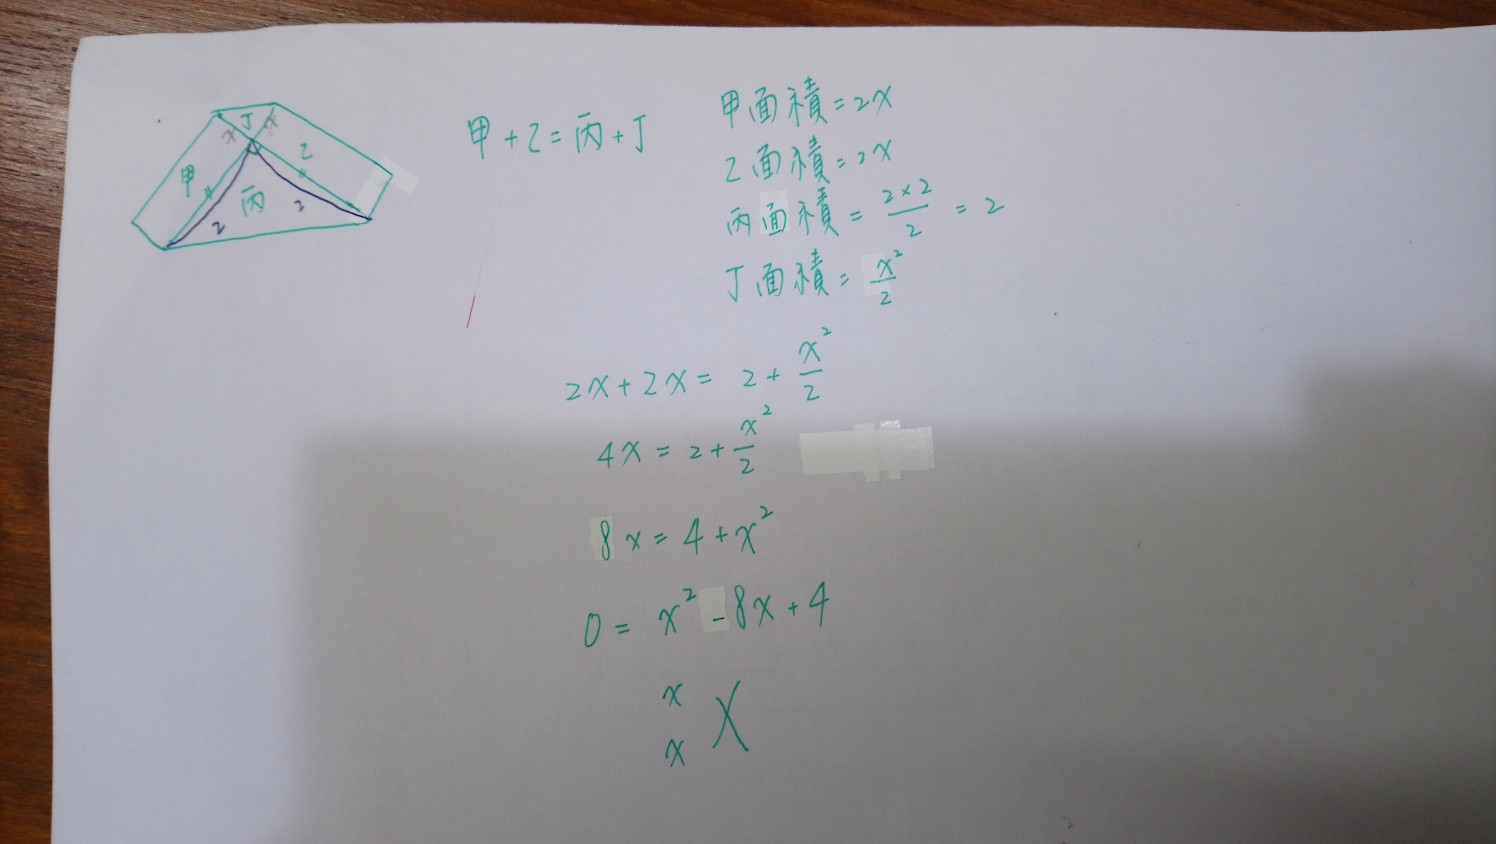 丁
x x
甲 乙
丙
2 2
甲+乙=丙+丁
甲面積=2x
乙面積=2x
丙面積=2×2/2=2
丁面積=x²/2
2x+2x=2+x²/2
4x=2+x²/2
8x=4+x²
0=x²-8x+4
x
x